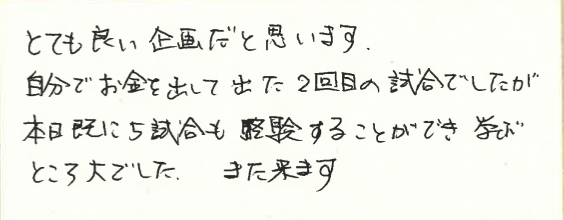 とても良い企画だと思います.
自分でお金を出して出た2回目の試合でしたが
本日既に5試合も経験することができ学ぶ
ところ大でした. また来ます